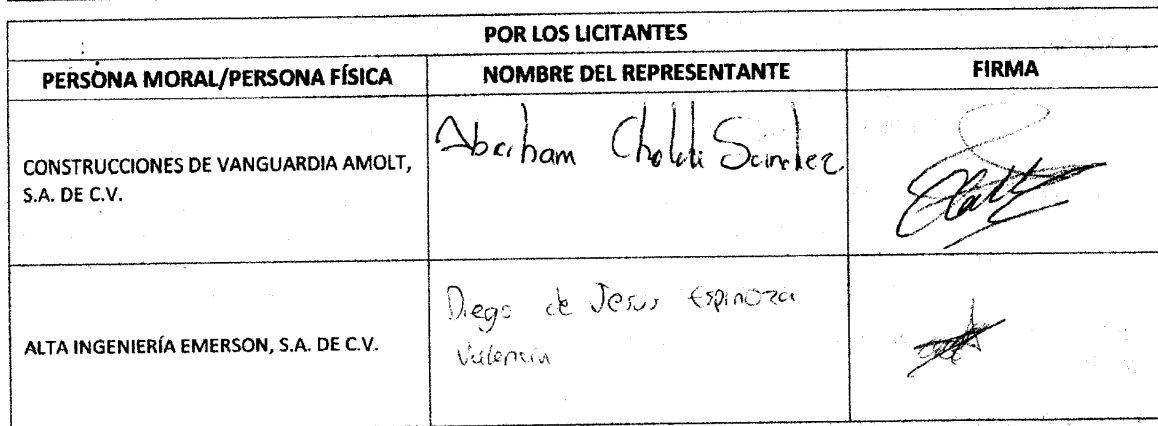 POR LOS LICITANTES
PERSONA MORAL/PERSONA FÍSICA NOMBRE DEL REPRESENTANTE FIRMA
CONSTRUCCIONES DE VANGUARDIA AMOLT,
S.A. DE C.V.
Abraham Sánchez
ALTA INGENIERÍA EMERSON, S.A. DE C.V.
Diego de Jesus Espinoza
Valencia